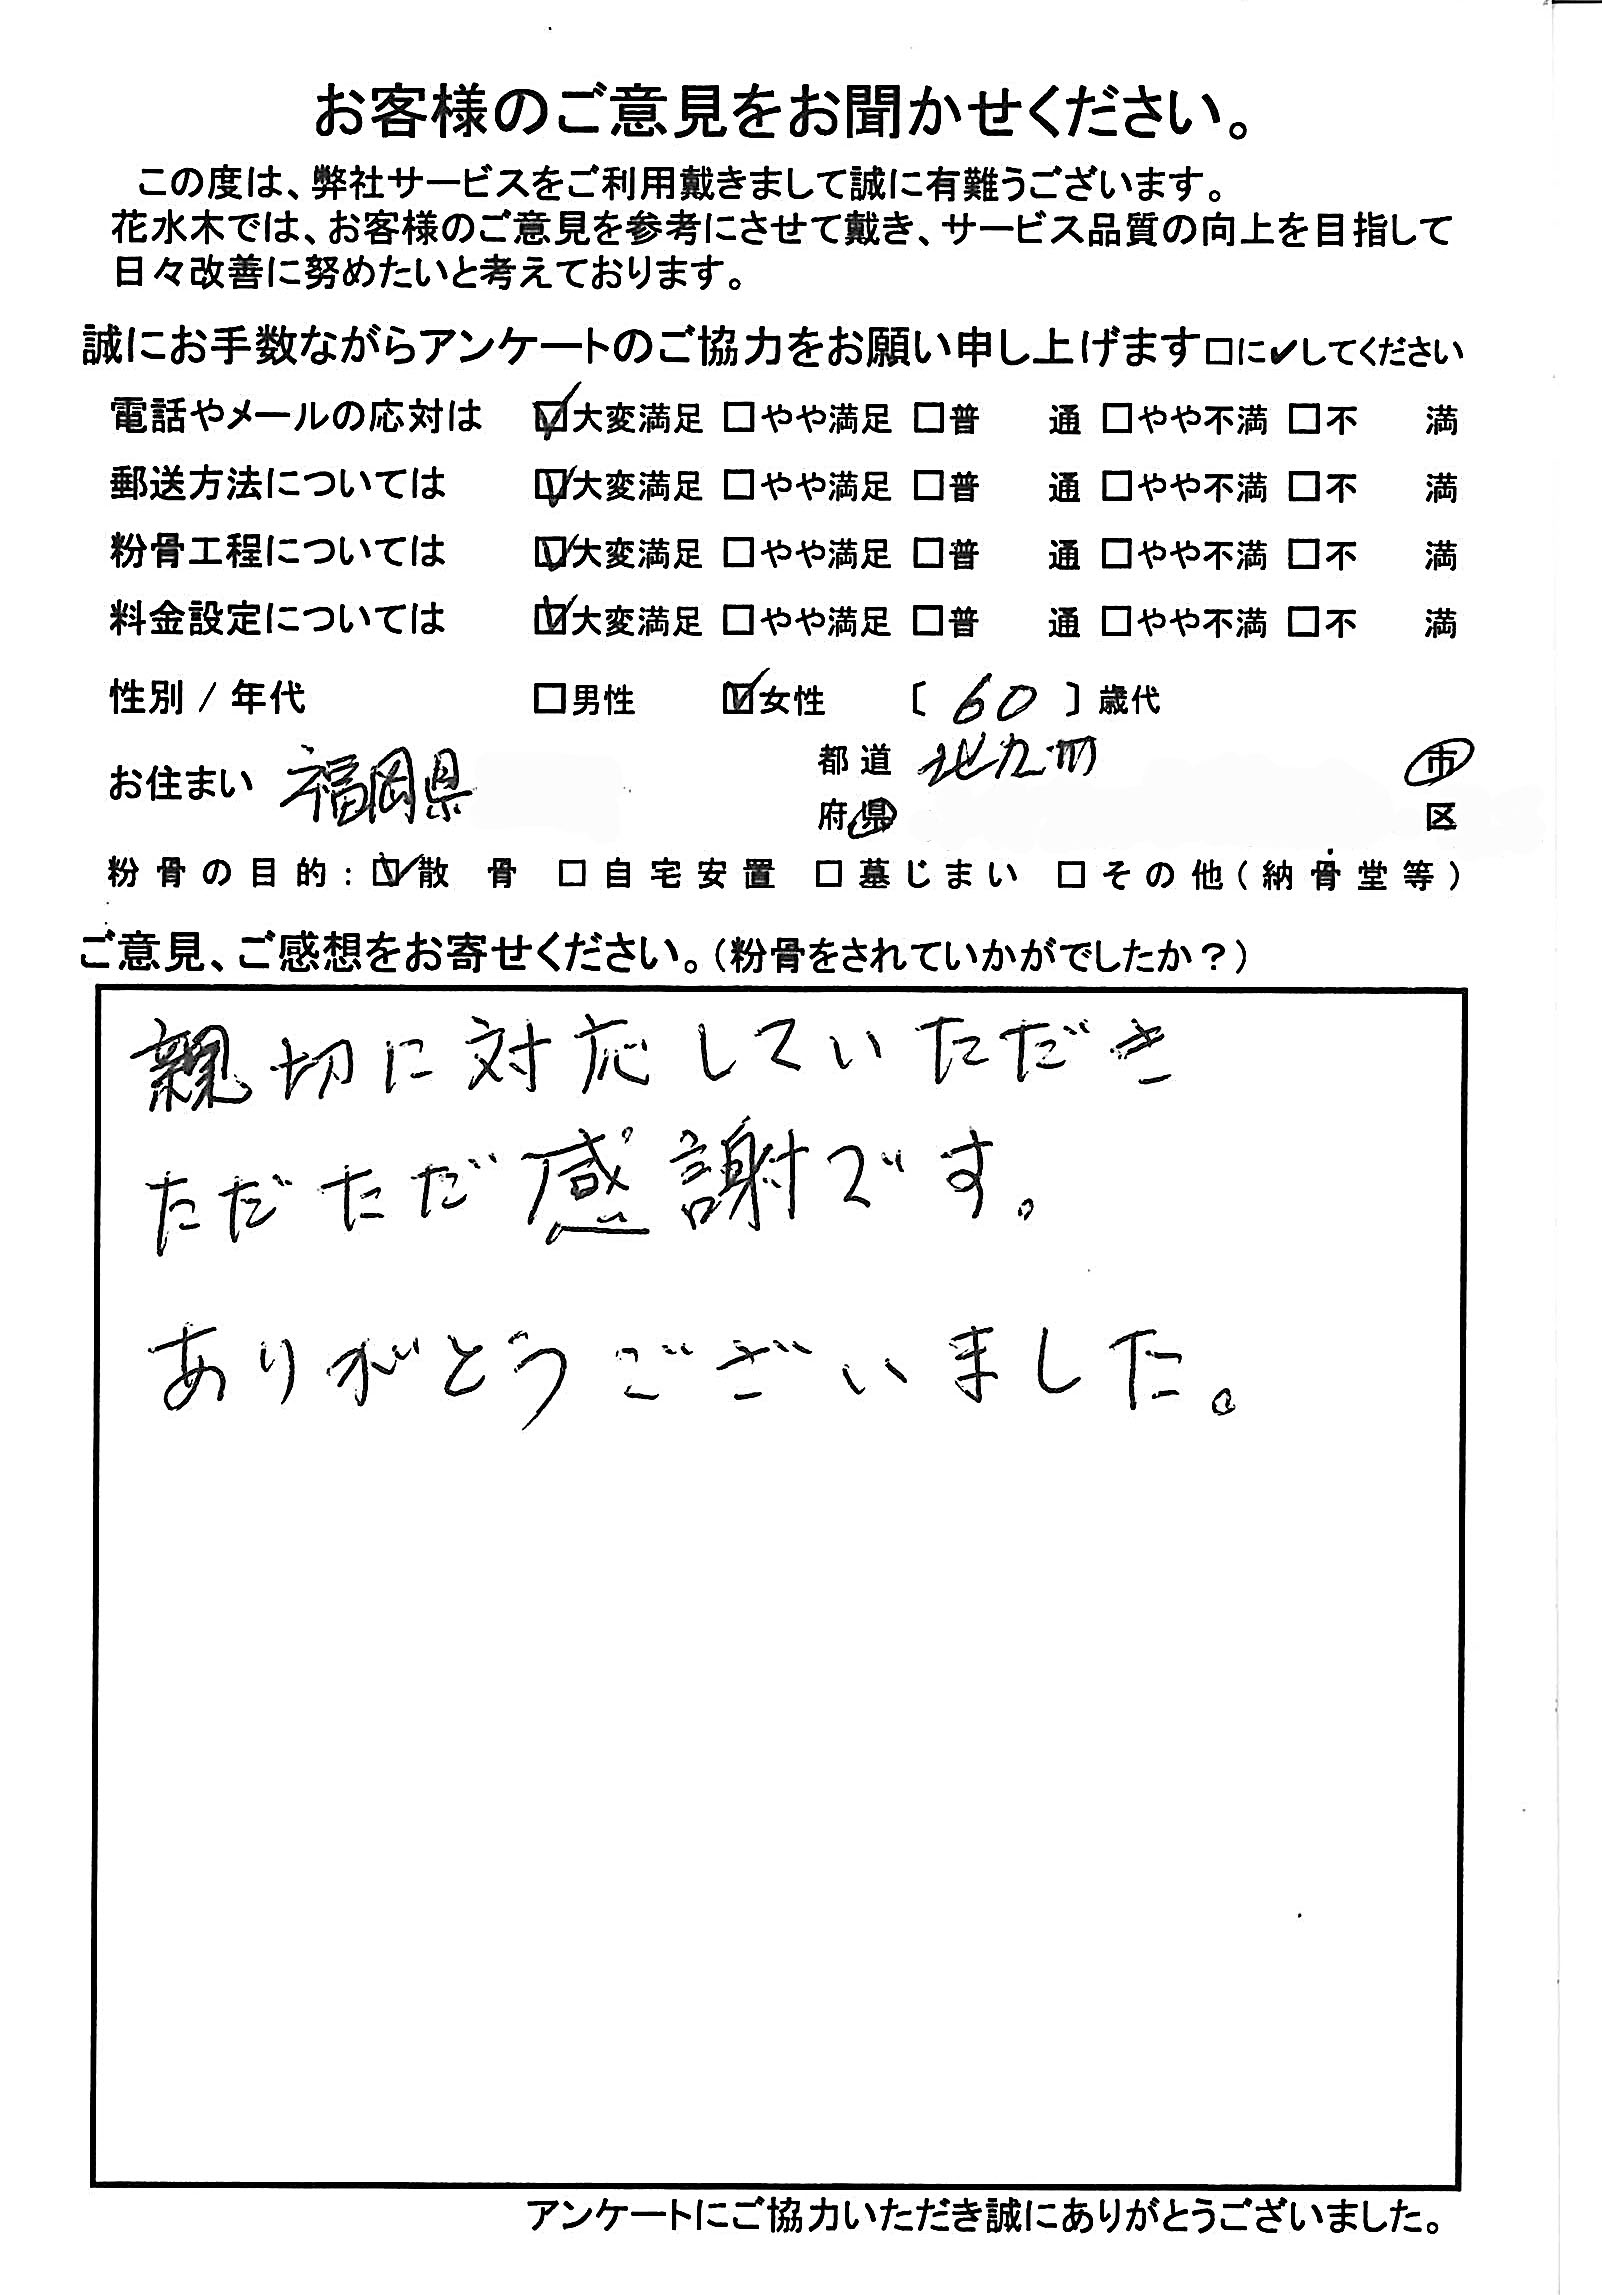 お客様のご意見をお聞かせください。
この度は、弊社サービスをご利用戴きまして誠に有難うございます。
花水木では、お客様のご意見を参考にさせて戴き、サービス品質の向上を目指して
日々改善に努めたいと考えております。
誠にお手数ながらアンケートのご協力をお願い申し上げます□に✔してください
電話やメールの応対は ☑大変満足 □やや満足 □普 通 □やや不満 □不 満
郵送方法については ☑大変満足 □やや満足 □普 通 □やや不満 □不 満
粉骨工程については ☑大変満足 □やや満足 □普 通 □やや不満 □不 満
料金設定については ☑大変満足 □やや満足 □普 通 □やや不満 □不 満
性別 / 年代 □男性 ☑女性 〔 60 〕歳代
お住まい 福岡県 都道府県 北九州 市区
粉骨の目的:☑散 骨 □自宅安置 □墓じまい □その他(納骨堂等)
ご意見、ご感想をお寄せください。(粉骨をされていかがでしたか?)
親切に対応していただき
ただただ感謝です。
ありがとうございました。
アンケートにご協力いただき誠にありがとうございました。